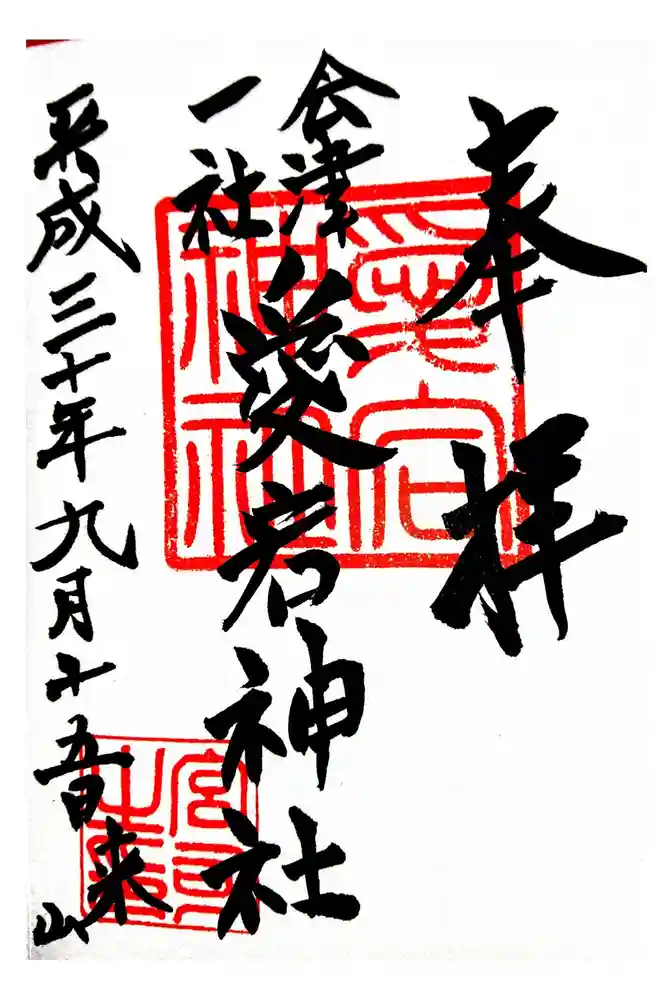 奉拝
会津
一社
愛宕神社
平成三十年九月十五日
来山
愛宕
宮司之